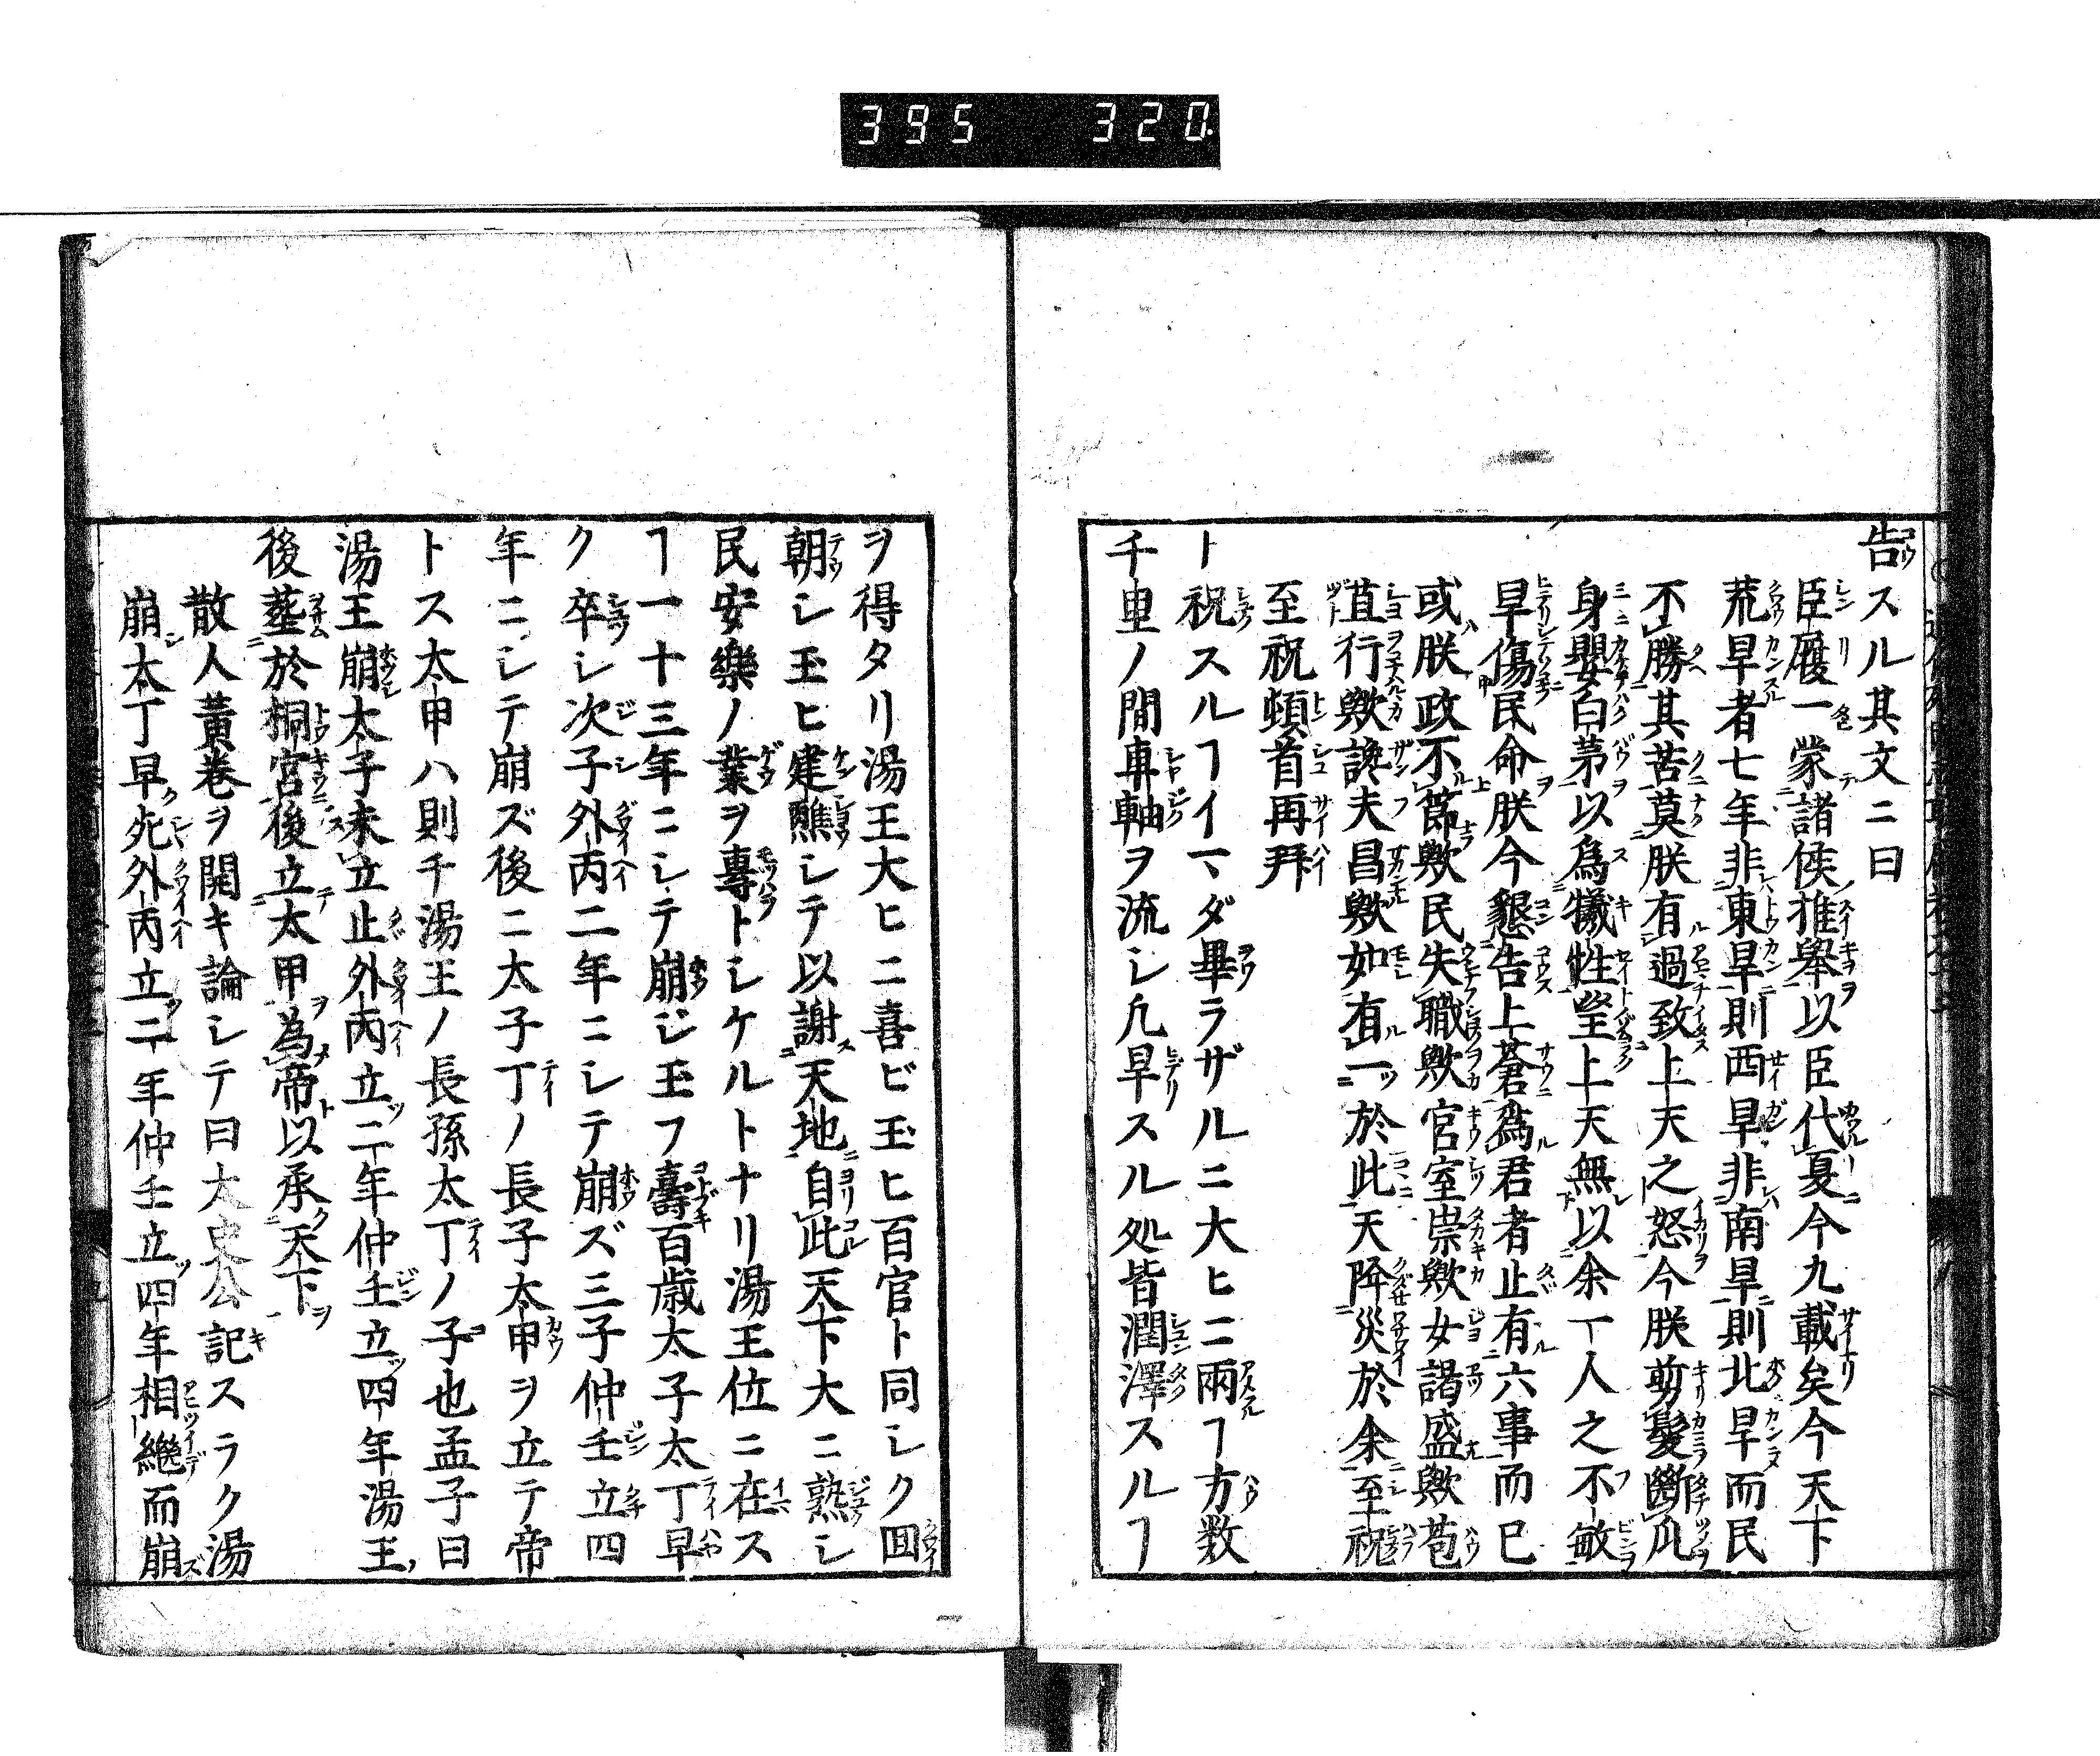 395 320
告スル其文ニ曰
臣履一蒙諸侯推舉以臣代夏今九載矣今天下
荒旱者七年非東旱則西旱非南旱則北旱而民
不勝其苦莫朕有過致上天之怒今朕剪髮斷爪
身嬰白茅以爲犧牲望上天無以余一人之不敏
旱傷民命朕今懇告上蒼爲君者止有六事而已
或朕政不節歟民失職歟官室崇歟女謁盛歟苞
苴行歟讒夫昌歟如有一於此天降災於余至祝
至祝頓首再拜
ト祝スルヿイマダ畢ラザルニ大ヒニ雨ヿ方数
千里ノ間車軸ヲ流シ凡旱スル処皆潤澤スルヿ
ヲ得タリ湯王大ヒニ喜ビ玉ヒ百官ト同シク囬
朝シ玉ヒ建醮シテ以謝天地自此天下大ニ熟シ
民安樂ノ業ヲ專トシケルトナリ湯王位ニ在ス
ヿ一十三年ニシテ崩ジ玉フ壽百歳太子太丁早
ク卒シ次子外丙二年ニシテ崩ズ三子仲壬立四
年ニシテ崩ズ後ニ太子丁ノ長子太甲ヲ立テ帝
トス太甲ハ則チ湯王ノ長孫太丁ノ子也孟子曰
湯王崩太子未立止外丙立二年仲壬立四年湯王
後塟於桐宮後立太甲為帝以承天下
散人黃卷ヲ開キ論シテ曰大史公記スラク湯
崩太丁早死外丙立二年仲壬立四年相繼而崩